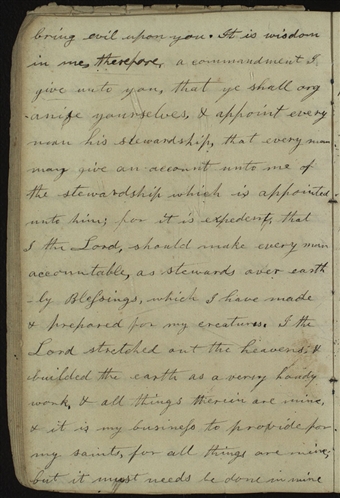 bring evil upon you. It is wisdom
in me, therefore, a commandment I
give unto you, that ye shall org
-anise yourselves, & appoint every
man his stewardship, that every man
may give an account unto me of
the stewardship which is appointed
unto him; for it is expedent, that
I the Lord, should make every man
accountable, as stewards over earth
-ly Blessings, which I have made
& prepared for my creatures. I the
Lord stretched out the heavens, &
builded the earth as a verry handy
work, & all things therein are mine,
& it is my business to propide for
my saints, for all things are mine;
but it must needs be done in mine